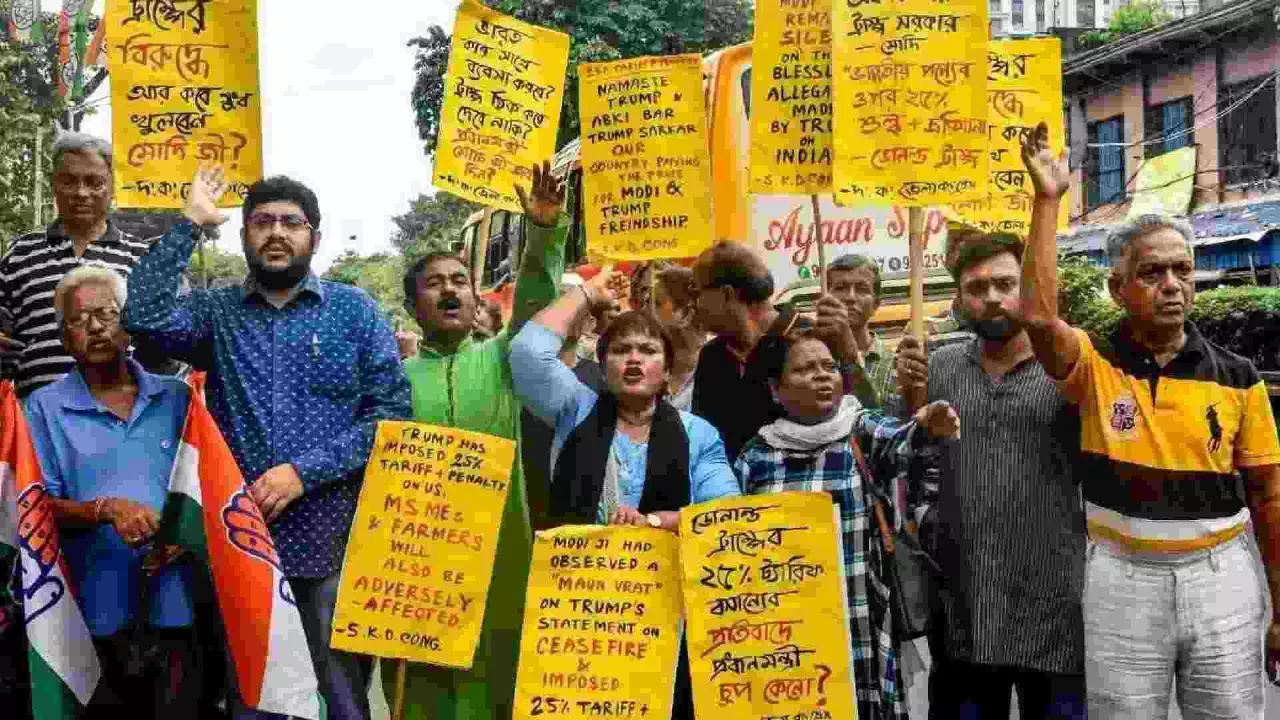 ট্রাম্পের
বিরুদ্ধে
আর কবে মুখ
খুলবেন
মোদি জী?
ভারত
কার সাথে
ব্যবসা করবে?
ট্রাম্প ঠিক করে
দেবে নাকি?
প্রধানমন্ত্রী
NAMASTE
TRUMP &
ABKI BAR
TRUMP SARKAR
OUR
COUNTRY PAYING
THE PRICE
FOR MODI &
TRUMP
FREINDSHIP.
- S.K.D CONG
MODI
REMA
SILE
ON TH
BLESSL
ALLEGA
MADE
BY TRU
ON
INDIA
- S.K.D
ট্রাম্প সরকার
- মোদি
"ভারতীয় পণ্যের
ওপর ২৫%
শুল্ক + জরিমানা
- ডোনাল্ড ট্রাম্প
- দঃ কঃ জেলা কংগ্রেস
Ayaan
TRUMP HAS
IMPOSED 25%
TARIFF + PENALTY
ON US.
MSMEs
& FARMERS
WILL
ALSO BE
ADVERSELY
-AFFECTED.
- S.K.D.CONG.
MODI JI HAD
OBSERVED A
"MAUN VRAT"
ON TRUMP'S
STATEMENT ON
CEASEFIRE
&
IMPOSED
25% TARIFF +
ডোনাল্ড
ট্রাম্পের
২৫% ট্যারিফ
বসানোর
প্রতিবাদে
প্রধানমন্ত্রী
চুপ কেনো?